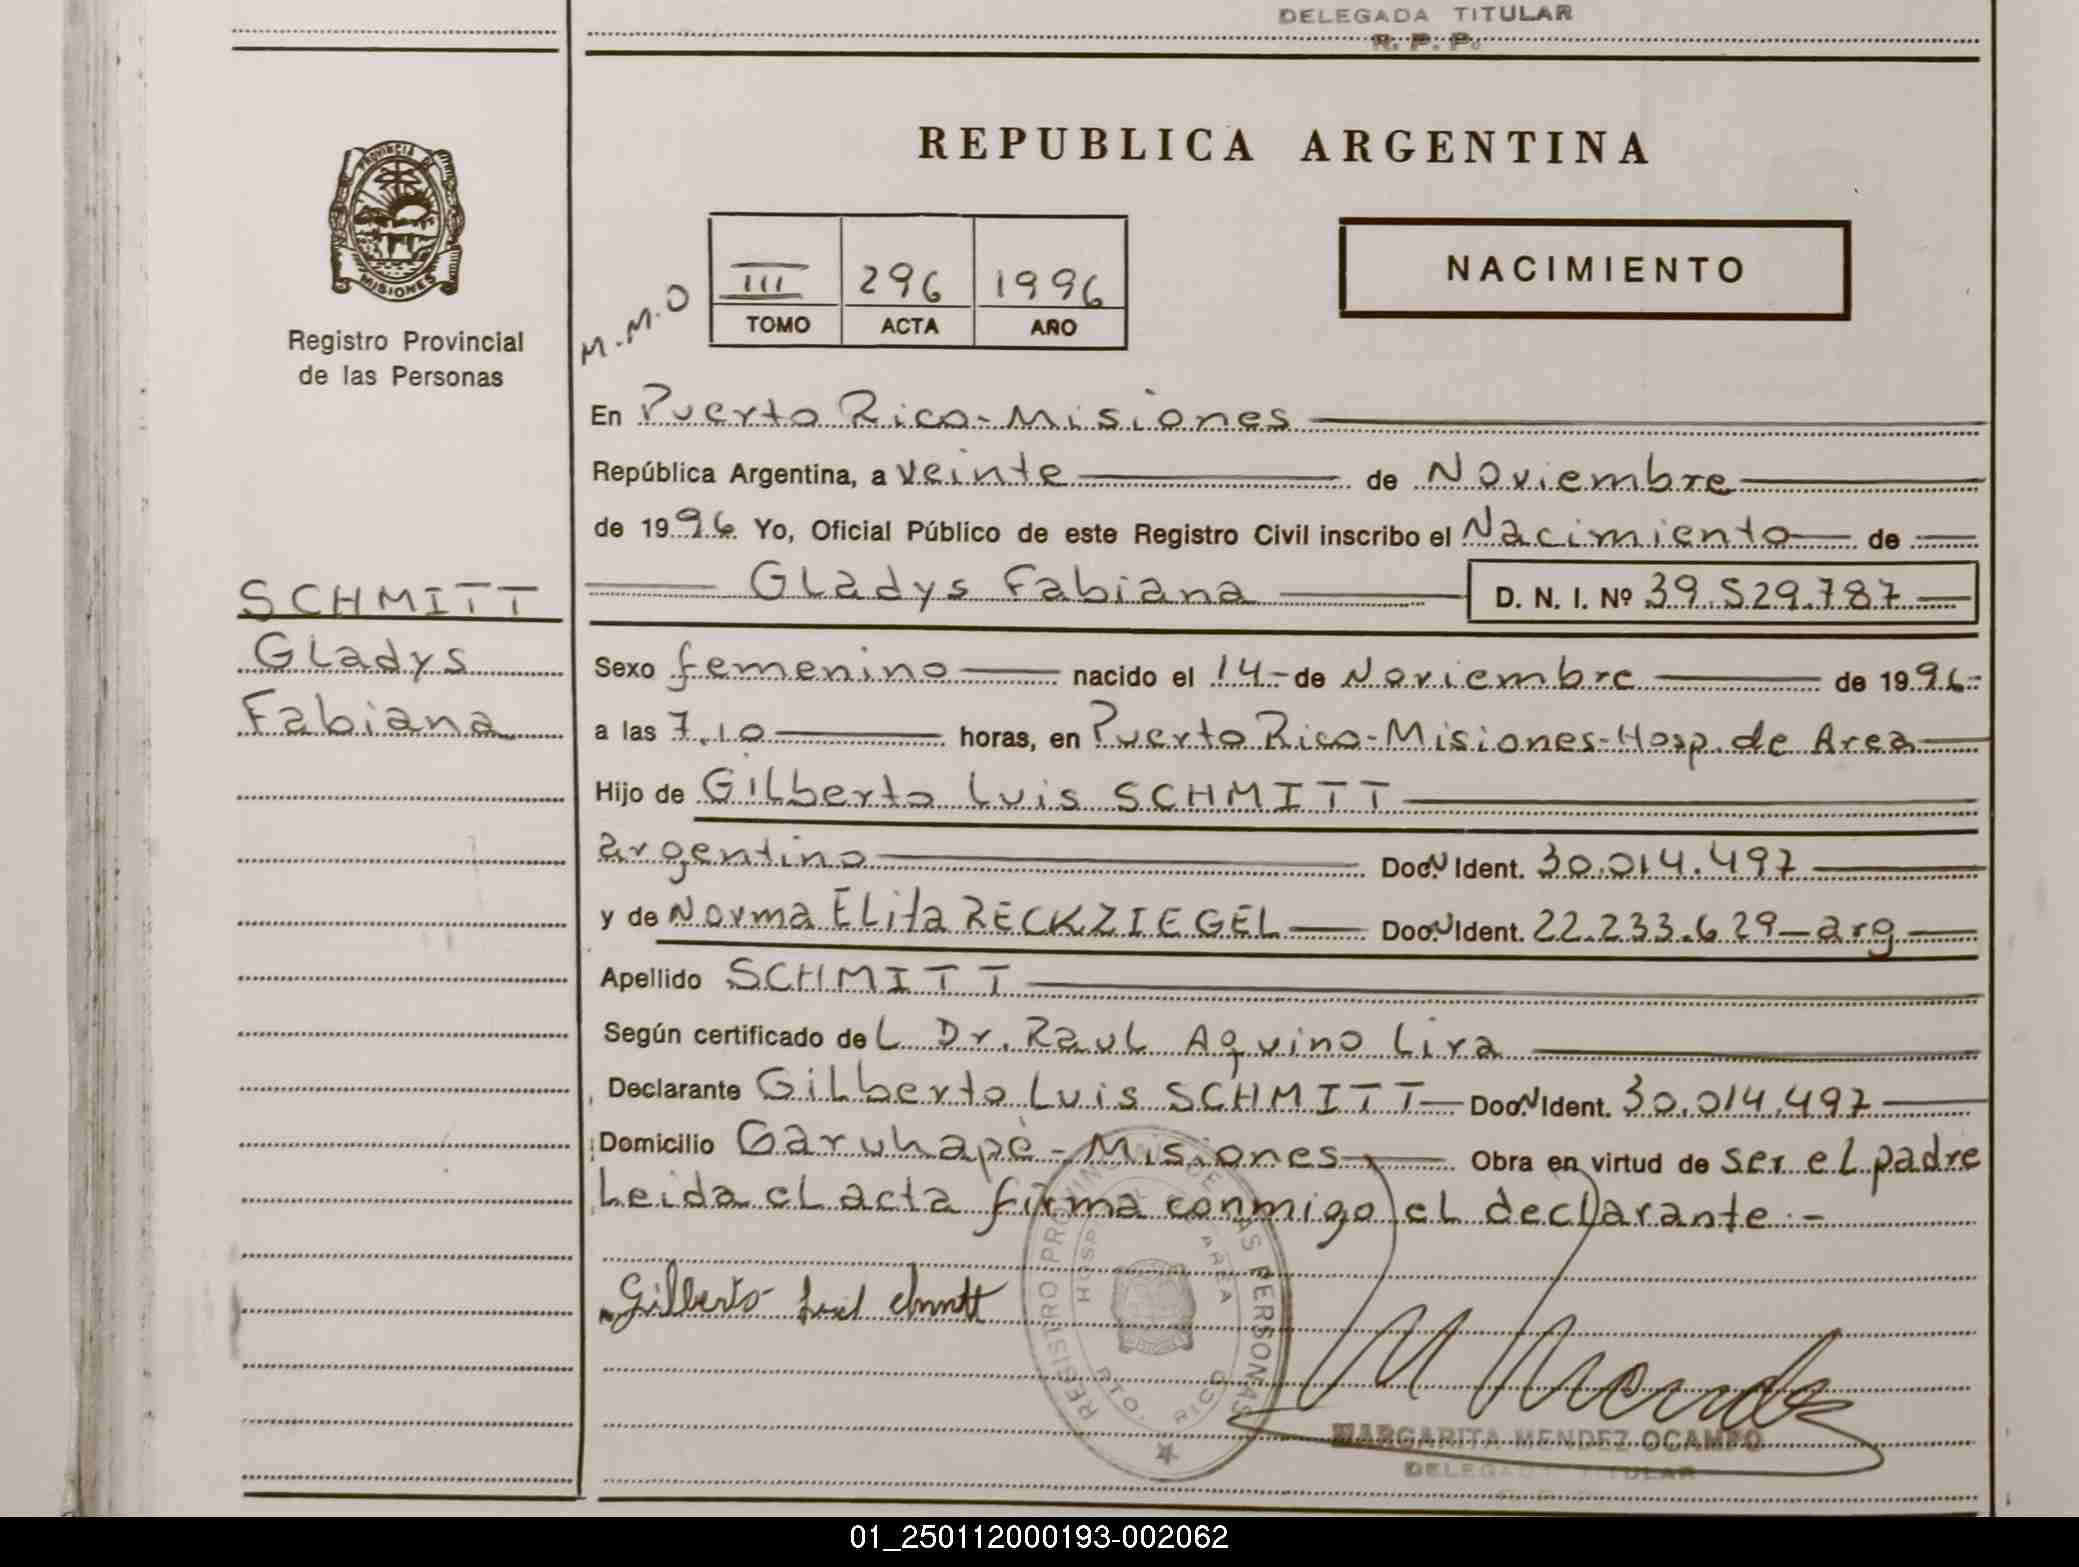 DELEGADA TITULAR
R. P. P.
PROVINCIA DE
MISIONES
Registro Provincial
de las Personas
REPUBLICA ARGENTINA
NACIMIENTO
M.M.O
III 296 1996
TOMO ACTA AÑO
En Puerto Rico-Misiones
República Argentina, a veinte de Noviembre
de 1996 Yo, Oficial Público de este Registro Civil inscribo el Nacimiento de
Gladys Fabiana D. N. I. Nº 39.529.787
SCHMITT
Gladys
Fabiana
Sexo femenino nacido el 14-de Noviembre de 1996-
a las 7.10 horas, en Puerto Rico-Misiones-Hosp. de Area
Hijo de Gilberto Luis SCHMITT
argentino Doc.N Ident. 30.014.497
y de Norma Elita RECKZIEGEL Doc.N Ident. 22.233.629-arg
Apellido SCHMITT
Según certificado de L Dr. Raul Aquino Lira
Declarante Gilberto Luis SCHMITT Doc.N Ident. 30.014.497
Domicilio Garuhapé-Misiones Obra en virtud de ser el padre
Leida el acta firma conmigo el declarante.-
Gilberto
REGISTRO PROVINCIAL DE LAS PERSONAS
HOSP. DE AREA
PTO. RICO
MARGARITA MENDEZ OCAMPO
DELEGADA TITULAR
01_250112000193-002062